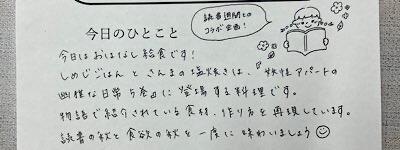 今日のひとこと
読書週間との
コラボ企画!
今日はおはなし給食です!
しめじごはんとさんまの塩焼きは、『妖怪アパートの
幽雅な日常5巻』に登場する料理です。
物語で紹介されている食材、作り方を再現しています。
読書の秋と食欲の秋を一度に味わいましょう